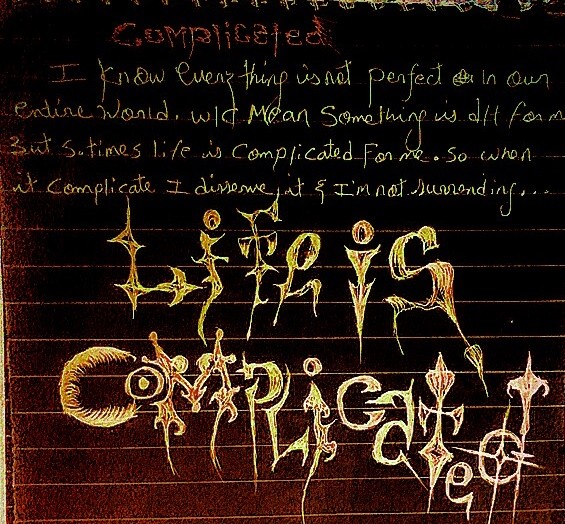 Complicated
I know everything is not perfect in our
entire World. w/c Mean Something is d/f for m
But s.times life is Complicated for me. So when
it Complicate I disserve it & I'm not surrending...
Life is
Complicated